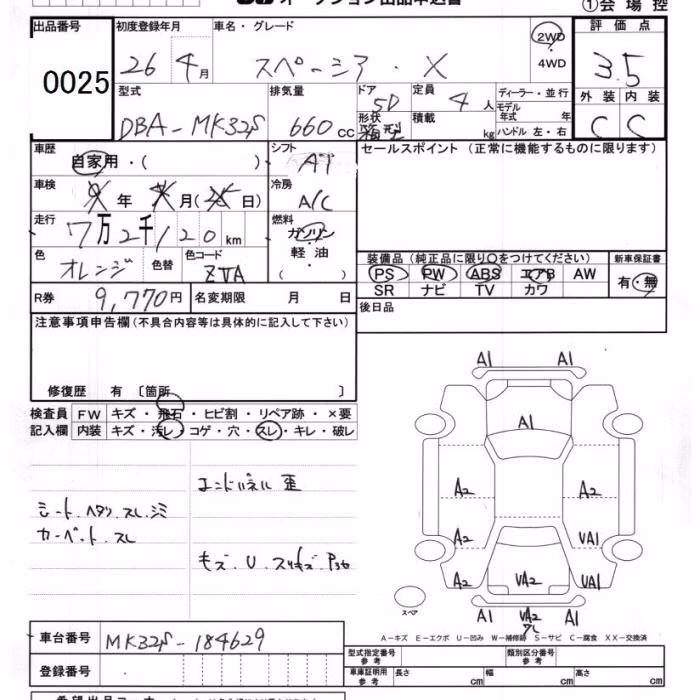 オークション出品申込書
①会場控
出品番号
0025
初度登録年月
26 4月
車名・グレード
スペーシア・X
2WD
4WD
評価点
3.5
外装 内装
C C
型式
DBA-MK32S
排気量
660 CC
ドア
5D
形状
箱型
定員
4人
積載
kg
ディーラー・並行
モデル年式 年
ハンドル 左・右
車歴
自家用・( )
シフト
AT
車検
年 月( 日)
冷房
A/C
走行
7万2千120km
燃料
ガソリン
・
軽油
( )
色
オレンジ
色替
色コード
ZVA
R券
9,770円
名変期限 月 日
セールスポイント(正常に機能するものに限ります)
装備品(純正品に限り○をつけてください)
PS PW ABS エアB AW
SR ナビ TV カワ
新車保証書
有・無
後日品
注意事項申告欄(不具合内容等は具体的に記入して下さい)
修復歴 有〔箇所 〕
検査員記入欄
FW キズ・飛石・ヒビ割・リペア跡・×要
内装 キズ・汚レ・コゲ・穴・スレ・キレ・破レ
エンドパネル 歪
シート ヘタリ スレ シミ
カーペット スレ
キズ・U・スリキズ P36
A1 A1
A1
A2 A2
A2 VA1
A2 VA2 VA1
A1 VA2 A1
ワレ
スペア
A-キズ E-エクボ U-凹み W-補修跡 S-サビ C-腐食 XX-交換済
車台番号
MK32S-184629
登録番号
型式指定番号 参考
類別区分番号 参考
車庫証明用 参考
長さ cm 幅 cm 高さ cm
希望出品コーナー